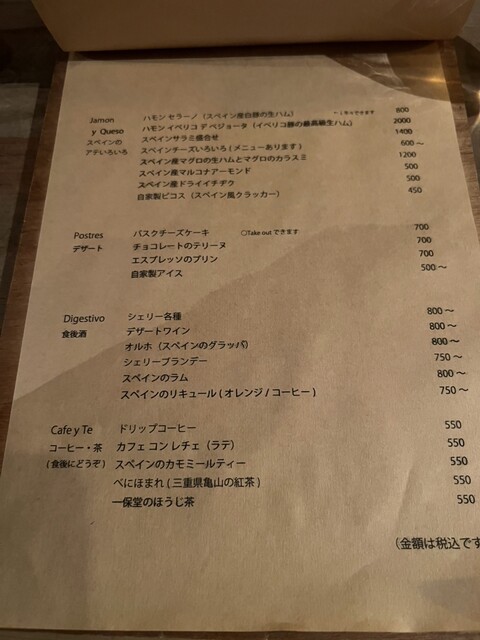 Jamon y Queso
スペインの アテいろいろ
ハモン セラーノ（スペイン産白豚の生ハム） 800
ハモン イベリコ デ ベジョータ（イベリコ豚の最高級生ハム） 2000
スペインサラミ盛合せ 1400
スペインチーズいろいろ ( メニューあります ) 600 〜
スペイン産マグロの生ハムとマグロのカラスミ 1200
スペイン産マルコナアーモンド 500
スペイン産ドライイチヂク 500
自家製ピコス（スペイン風クラッカー） 450
Postres
デザート
バスクチーズケーキ 〇Take out できます 700
チョコレートのテリーヌ 700
エスプレッソのプリン 700
自家製アイス 500 〜
Digestivo
食後酒
シェリー各種 800 〜
デザートワイン 800 〜
オルホ（スペインのグラッパ） 800 〜
シェリーブランデー 750 〜
スペインのラム 800 〜
スペインのリキュール ( オレンジ / コーヒー ) 750 〜
Cafe y Te
コーヒー・茶
( 食後にどうぞ )
ドリップコーヒー 550
カフェ コン レチェ（ラテ） 550
スペインのカモミールティー 550
べにほまれ ( 三重県亀山の紅茶 ) 550
一保堂のほうじ茶 550
（金額は税込です